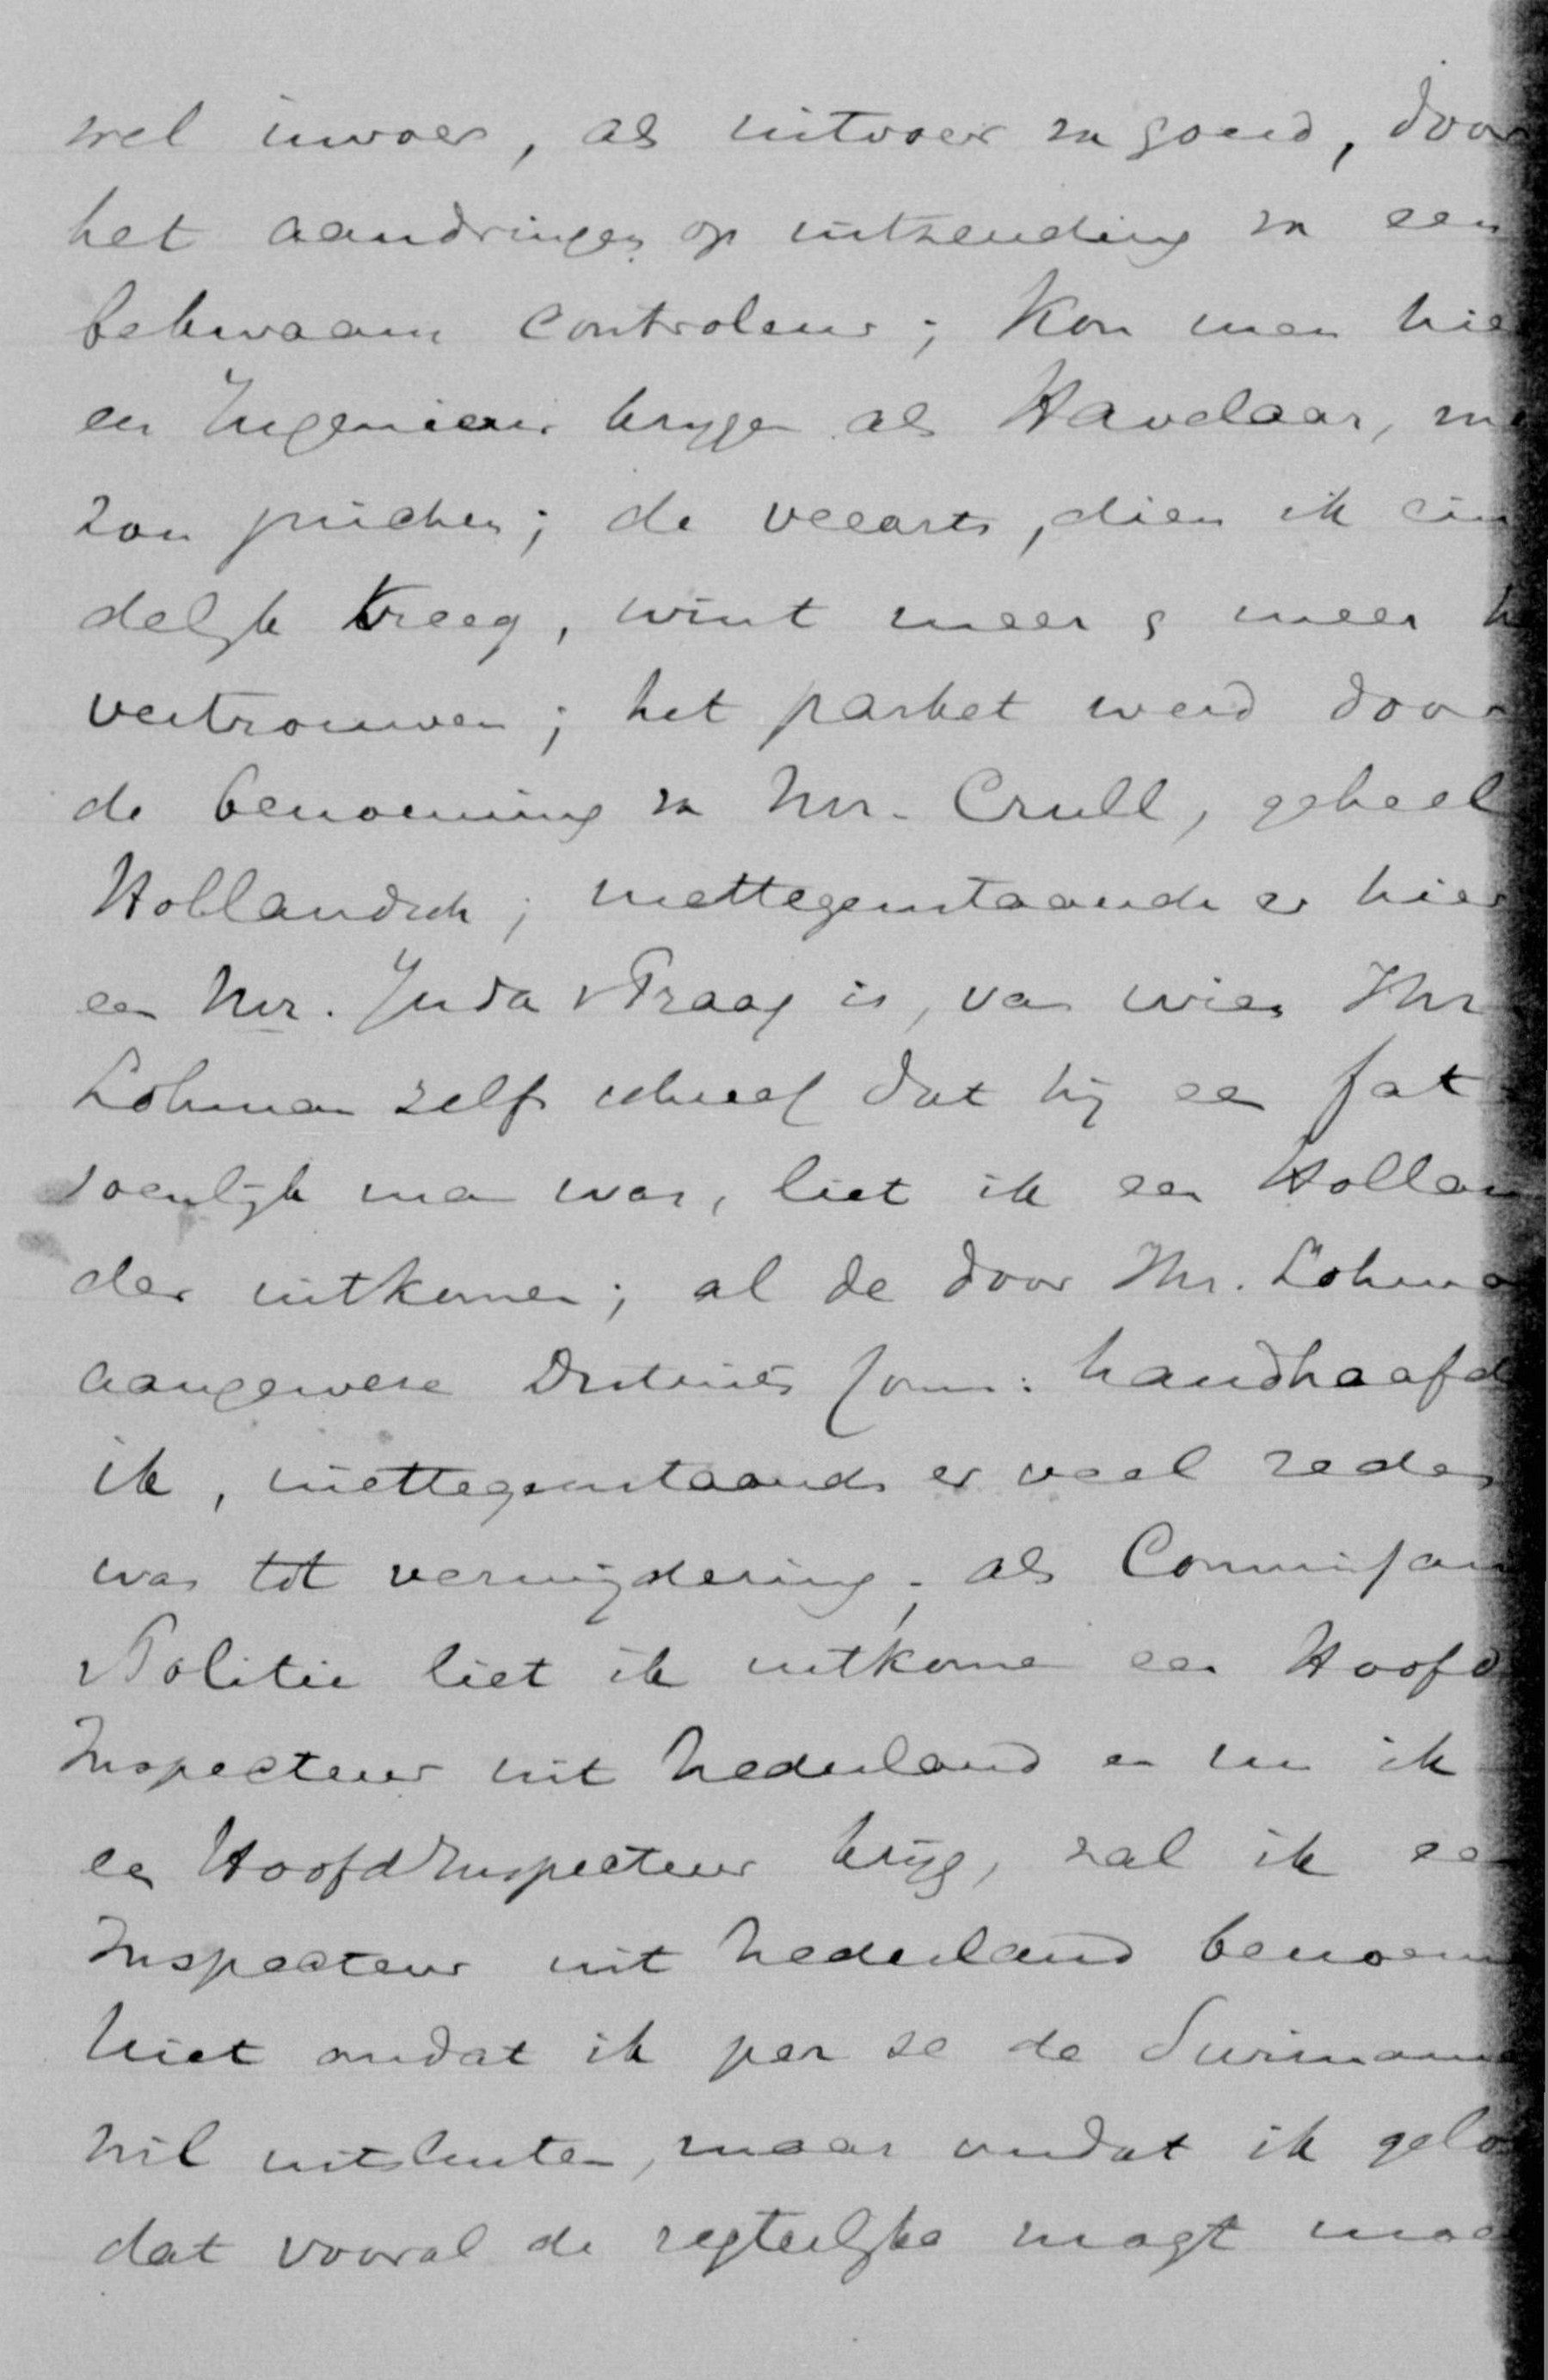 wel invoer, als uitvoer v goud, door
het aandringen op uitzending v een
bekwaam Controleur; Kon men hie
een Ingenieur krygen als Havelaar, me
zou juichen; de veearts, dien ik ein
delyk kreeg, wint meer & meer h
vertrouwen; het parket werd door
de benoeming v Mr. Crull, geheel
Hollandsch; niettegenstaande er hier
een Mr. Juda v Praag is, van wien Jhr
Lohman zelf schreef dat hij een fat
soenlijk man was, liet ik een Hollan
der uitkomen; al de door Jhr. Lohma
aangewezen Districts Com: handhaafd
ik, niettegenstaande er veel reden
was tot verwijdering; als Commissar
v Politie liet ik uitkomen een Hoofd
Inspecteur uit Nederland en nu ik
een Hoofd Inspecteur krijg, zal ik een
Inspecteur uit Nederland benoem
Niet omdat ik per se de Suriname
wil uitsluiten, maar omdat ik gelo
dat vooral de regterlyke magt moe